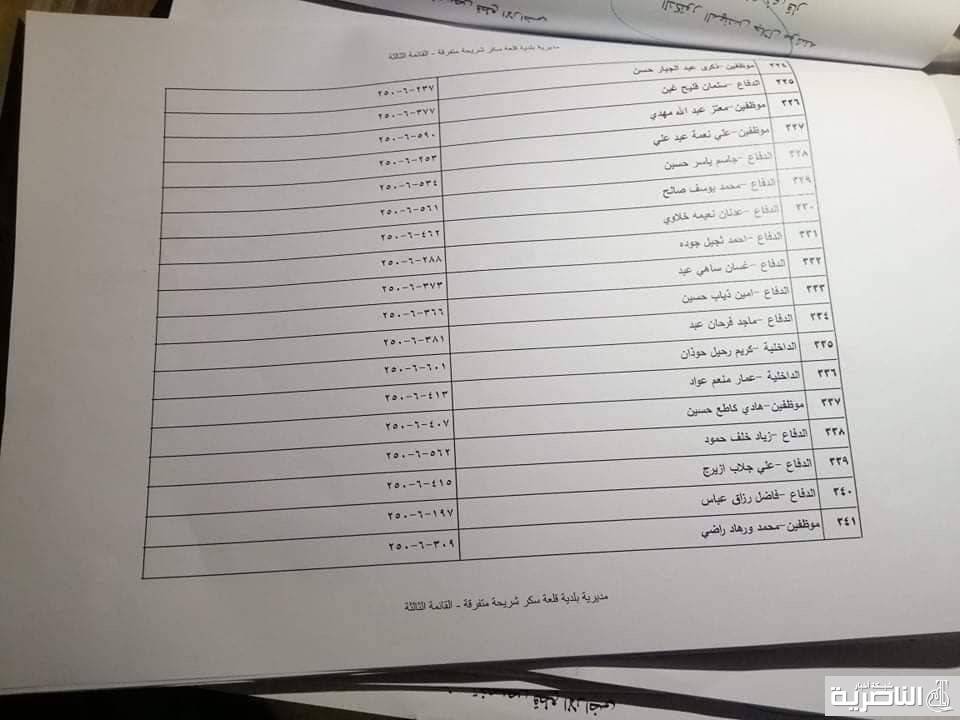 مديرية بلدية قلعة سكر شريحة متفرقة - القائمة الثالثة
٣٢٤ موظفين -ذكرى عبد الجبار حسن ٢٣٧-٦-٢٥٠
٣٢٥ الدفاع -سلمان فليح غين ٣٧٧-٦-٢٥٠
٣٢٦ موظفين-معتز عبد الله مهدي ٥٩٠-٦-٢٥٠
٣٢٧ موظفين-علي نعمة عيد علي ٢٥٣-٦-٢٥٠
٣٢٨ الدفاع -جاسم ياسر حسين ٥٣٤-٦-٢٥٠
٣٢٩ الدفاع -محمد يوسف صالح ٥٦١-٦-٢٥٠
٣٣٠ الدفاع -عدنان نعيمه خلاوي ٤٦٢-٦-٢٥٠
٣٣١ الدفاع -احمد ثجيل جوده ٢٨٨-٦-٢٥٠
٣٣٢ الدفاع -غسان ساهي عبد ٣٧٣-٦-٢٥٠
٣٣٣ الدفاع -امين ذياب حسين ٣٦٦-٦-٢٥٠
٣٣٤ الدفاع -ماجد فرحان عبد ٣٨١-٦-٢٥٠
٣٣٥ الداخلية -كريم رحيل حوذان ٦٠١-٦-٢٥٠
٣٣٦ الداخلية -عمار منعم عواد ٤١٣-٦-٢٥٠
٣٣٧ موظفين-هادي كاطع حسين ٤٠٧-٦-٢٥٠
٣٣٨ الدفاع -زياد خلف حمود ٥٦٢-٦-٢٥٠
٣٣٩ الدفاع -علي جلاب ازيرج ٤١٥-٦-٢٥٠
٣٤٠ الدفاع -فاضل رزاق عباس ١٩٧-٦-٢٥٠
٣٤١ موظفين-محمد ورهاد راضي ٣٠٩-٦-٢٥٠
مديرية بلدية قلعة سكر شريحة متفرقة - القائمة الثالثة
شبكة اخبار
الناصرية